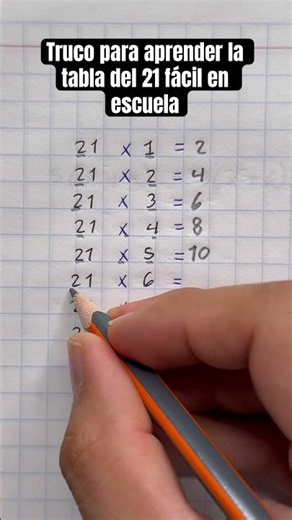 Truco para aprender la
tabla del 21 fácil en
escuela
21 x 1 = 2
21 x 2 = 4
21 x 3 = 6
21 x 4 = 8
21 x 5 = 10
21 x 6 =